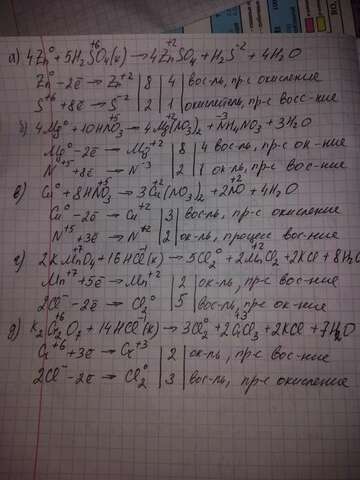 а) 4Zn⁰ + 5H₂S⁺⁶O₄(к) → 4Zn⁺²SO₄ + H₂S⁻² + 4H₂O
Zn⁰ - 2ē → Zn⁺² | 8 | 4 | вос-ль, пр-с окисления
S⁺⁶ + 8ē → S⁻² | 2 | 1 | окислитель, пр-с восс-ние
б) 4Mg⁰ + 10HN⁺⁵O₃ → 4Mg⁺²(NO₃)₂ + N⁻³H₄NO₃ + 3H₂O
Mg⁰ - 2ē → Mg⁺² | 8 | 4 вос-ль, пр-с ок-ние
N⁺⁵ + 8ē → N⁻³ | 2 | 1 ок-ль, пр-с вос-ние
в) Cu⁰ + 8HN⁺⁵O₃ → 3Cu⁺²(NO₃)₂ + 2N⁺²O + 4H₂O
Cu⁰ - 2ē → Cu⁺² | 3 | вос-ль, пр-с окисление
N⁺⁵ + 3ē → N⁺² | 2 | ок-ль, процесс вос-ния
г) 2KMn⁺⁷O₄ + 16HCl⁻¹(к) → 5Cl₂⁰ + 2Mn⁺²Cl₂ + 2KCl + 8H₂O
Mn⁺⁷ + 5ē → Mn⁺² | 2 | ок-ль, пр-с вос-ние
2Cl⁻ - 2ē → Cl₂⁰ | 5 | вос-ль, пр-с ок-ние
д) K₂Cr₂⁺⁶O₇ + 14HCl(к) → 3Cl₂⁰ + 2Cr⁺³Cl₃ + 2KCl + 7H₂O
Cr⁺⁶ + 3ē → Cr⁺³ | 2 | ок-ль, пр-с вос-ние
2Cl⁻ - 2ē → Cl₂⁰ | 3 | вос-ль, пр-с окисления